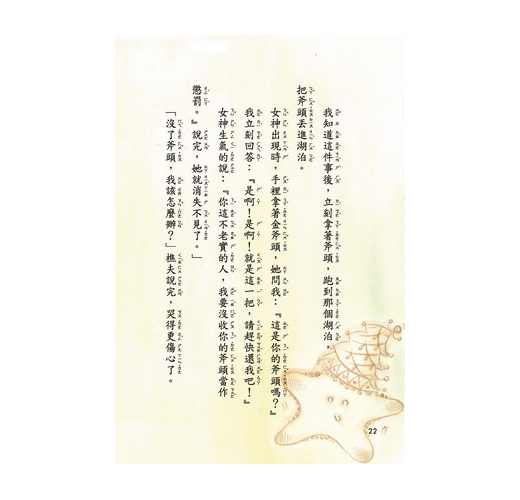 我知道這件事後，立刻拿著斧頭，跑到那個湖泊，
把斧頭丟進湖泊。
女神出現時，手裡拿著金斧頭，她問我：『這是你的斧頭嗎？』
我立刻回答：『是啊！是啊！就是這一把，請趕快還我吧！』
女神生氣的說：『你這不老實的人，我要沒收你的斧頭當作
懲罰。』說完，她就消失不見了。」
「沒了斧頭，我該怎麼辦？」樵夫說完，哭得更傷心了。
22